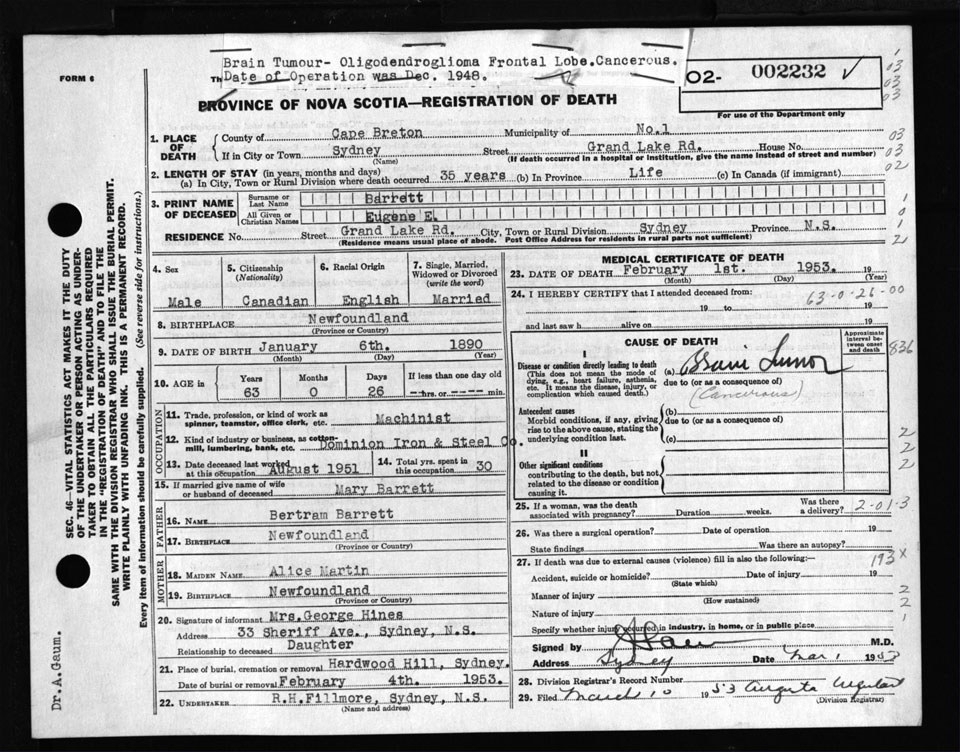 Brain Tumour- Oligodendroglioma Frontal Lobe. Cancerous.
Date of Operation was Dec. 1948.
FORM 6
O2- 002232 ✓
For use of the Department only
PROVINCE OF NOVA SCOTIA—REGISTRATION OF DEATH
1. PLACE OF DEATH { County of Cape Breton Municipality of No.1
If in City or Town Sydney Street Grand Lake Rd. House No.
(Name) (If death occurred in a hospital or institution, give the name instead of street and number)
2. LENGTH OF STAY (in years, months and days)
(a) In City, Town or Rural Division where death occurred 35 years (b) In Province Life (c) In Canada (if immigrant)
3. PRINT NAME OF DECEASED
Surname or Last Name Barrett
All Given or Christian Names Eugene E.
RESIDENCE No. Street Grand Lake Rd. City, Town or Rural Division Sydney Province N.S.
(Residence means usual place of abode. Post Office Address for residents in rural parts not sufficient)
4. Sex Male
5. Citizenship (Nationality) Canadian
6. Racial Origin English
7. Single, Married, Widowed or Divorced (write the word) Married
8. BIRTHPLACE Newfoundland
(Province or Country)
9. DATE OF BIRTH January 6th. 1890
(Month) (Day) (Year)
10. AGE in Years Months Days If less than one day old
63 0 26 hrs. or min.
OCCUPATION
11. Trade, profession, or kind of work as spinner, teamster, office clerk, etc. Machinist
12. Kind of industry or business, as cotton-mill, lumbering, bank, etc. Dominion Iron & Steel Co.
13. Date deceased last worked at this occupation August 1951
14. Total yrs. spent in this occupation 30
15. If married give name of wife or husband of deceased Mary Barrett
FATHER
16. NAME Bertram Barrett
17. BIRTHPLACE Newfoundland
(Province or Country)
MOTHER
18. MAIDEN NAME Alice Martin
19. BIRTHPLACE Newfoundland
(Province or Country)
20. Signature of informant Mrs.George Hines
Address 33 Sheriff Ave., Sydney, N.S.
Relationship to deceased Daughter
21. Place of burial, cremation or removal Hardwood Hill, Sydney.
Date of burial or removal February 4th. 1953.
22. UNDERTAKER R.H.Fillmore, Sydney, N.S.
(Name and address)
MEDICAL CERTIFICATE OF DEATH
23. DATE OF DEATH February 1st. 1953. 19
(Month) (Day) (Year)
24. I HEREBY CERTIFY that I attended deceased from:
63-0-26-00
19 to 19
and last saw h alive on 19
CAUSE OF DEATH
Approximate interval between onset and death
836
I
Disease or condition directly leading to death
(This does not mean the mode of dying, e.g., heart failure, asthenia, etc. It means the disease, injury, or complication which caused death.)
(a) Brain Tumor
due to (or as a consequence of)
(Cancerous)
Antecedent causes
Morbid conditions, if any, giving rise to the above cause, stating the underlying condition last.
(b)
due to (or as a consequence of)
(c)
II
Other significant conditions
contributing to the death, but not related to the disease or condition causing it.
25. If a woman, was the death associated with pregnancy? Duration weeks. Was there a delivery?
2-01-3
26. Was there a surgical operation? Date of operation 19
State findings Was there an autopsy?
27. If death was due to external causes (violence) fill in also the following:
193X
Accident, suicide or homicide? Date of injury 19
(State which)
Manner of injury
(How sustained)
Nature of injury
Specify whether injury occurred in industry, in home, or in public place
Signed by M.D.
Address Sydney Date Mar 1 1953
28. Division Registrar's Record Number
29. Filed March 10 1953 Augusta
(Division Registrar)
SEC. 46—VITAL STATISTICS ACT MAKES IT THE DUTY
OF THE UNDERTAKER OR PERSON ACTING AS UNDER-
TAKER TO OBTAIN ALL THE PARTICULARS REQUIRED
IN THE "REGISTRATION OF DEATH" AND TO FILE THE
SAME WITH THE DIVISION REGISTRAR WHO SHALL ISSUE THE BURIAL PERMIT.
WRITE PLAINLY WITH UNFADING INK. THIS IS A PERMANENT RECORD.
Every item of information should be carefully supplied. (See reverse side for instructions.)
Dr.A.Gaum.